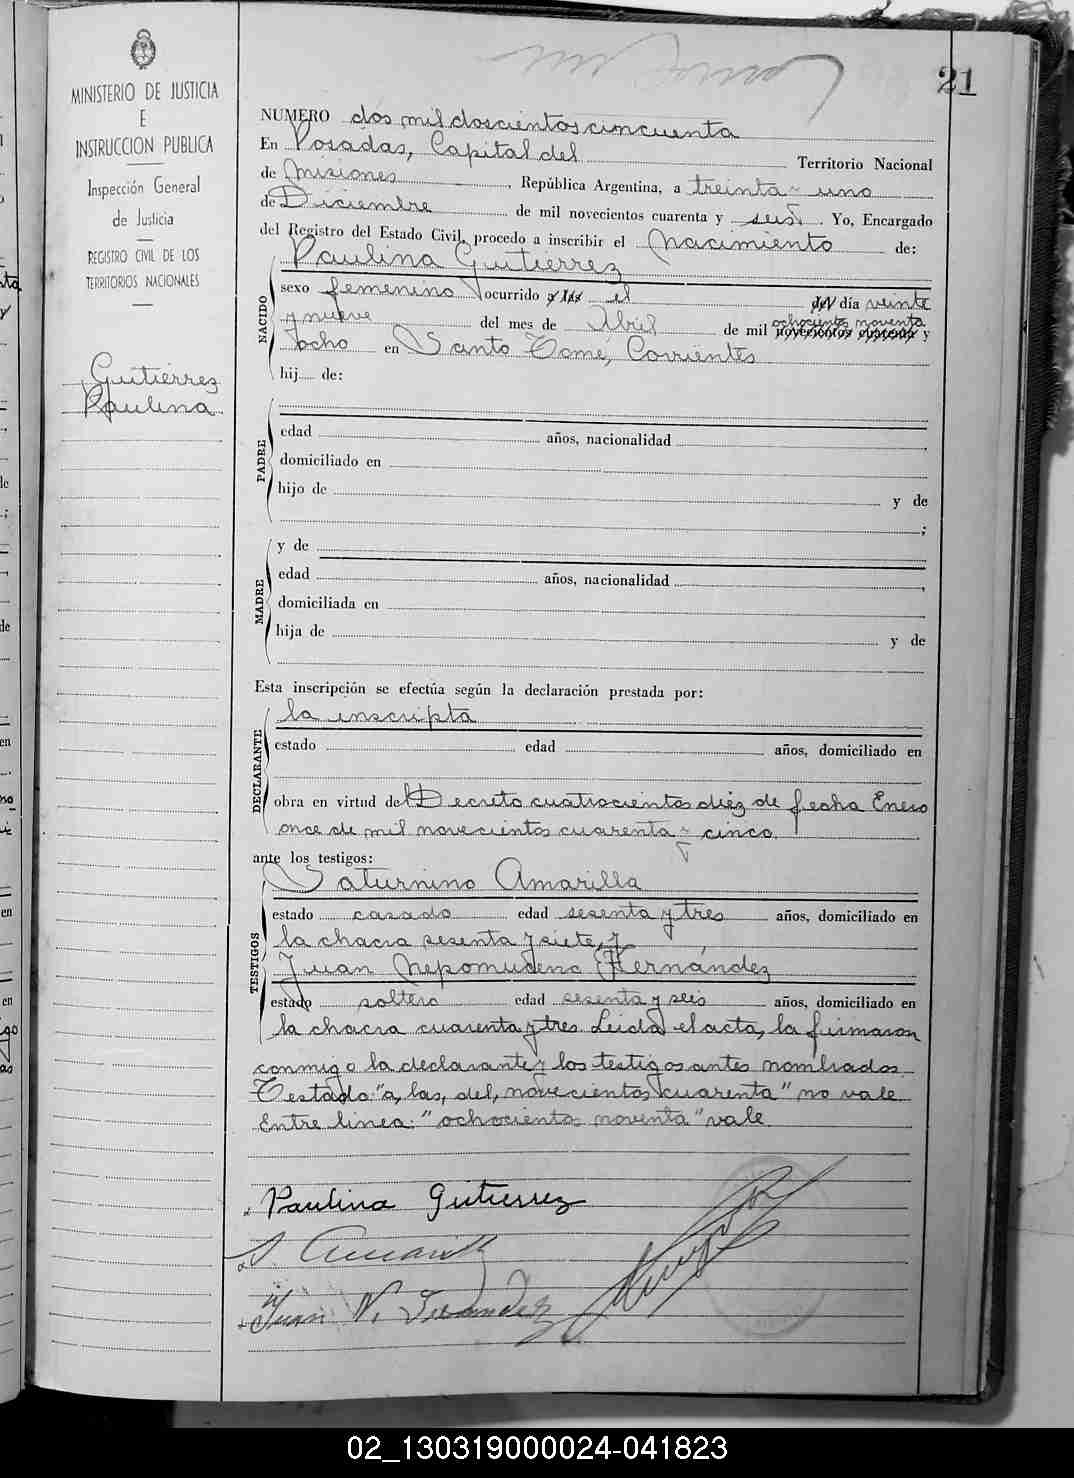 21
MINISTERIO DE JUSTICIA
E
INSTRUCCION PUBLICA
Inspección General
de Justicia
REGISTRO CIVIL DE LOS
TERRITORIOS NACIONALES
Gutiérrez
Paulina
NUMERO dos mil doscientos cincuenta
En Posadas, Capital del Territorio Nacional
de Misiones, República Argentina, a treinta y uno
de Diciembre de mil novecientos cuarenta y seis. Yo, Encargado
del Registro del Estado Civil, procedo a inscribir el Nacimiento de:
Paulina Gutiérrez
NACIDO
sexo femenino ocurrido a las el del día veinte
y nueve del mes de Abril de mil novecientos cuarenta y
ochocientos noventa
ocho en Santo Tomé, Corrientes
hij de:
PADRE
edad años, nacionalidad
domiciliado en
hijo de y de
;
MADRE
y de
edad años, nacionalidad
domiciliada en
hija de y de
Esta inscripción se efectúa según la declaración prestada por:
DECLARANTE
la inscripta
estado edad años, domiciliado en
obra en virtud del Decreto cuatrocientos diez de fecha Enero
once de mil novecientos cuarenta y cinco.
ante los testigos:
TESTIGOS
Saturnino Amarilla
estado casado edad sesenta y tres años, domiciliado en
la chacra sesenta y siete, y
Juan Nepomuceno Hernández
estado soltero edad sesenta y seis años, domiciliado en
la chacra cuarenta y tres. Leida el acta, la firmaron
conmigo la declarante y los testigos antes nombrados.
Testado: "a, las, del, novecientos cuarenta" no vale.
Entre linea: "ochocientos noventa" vale.
Paulina Gutierrez
S. Amarilla
Juan N. Hernandez
02_130319000024-041823